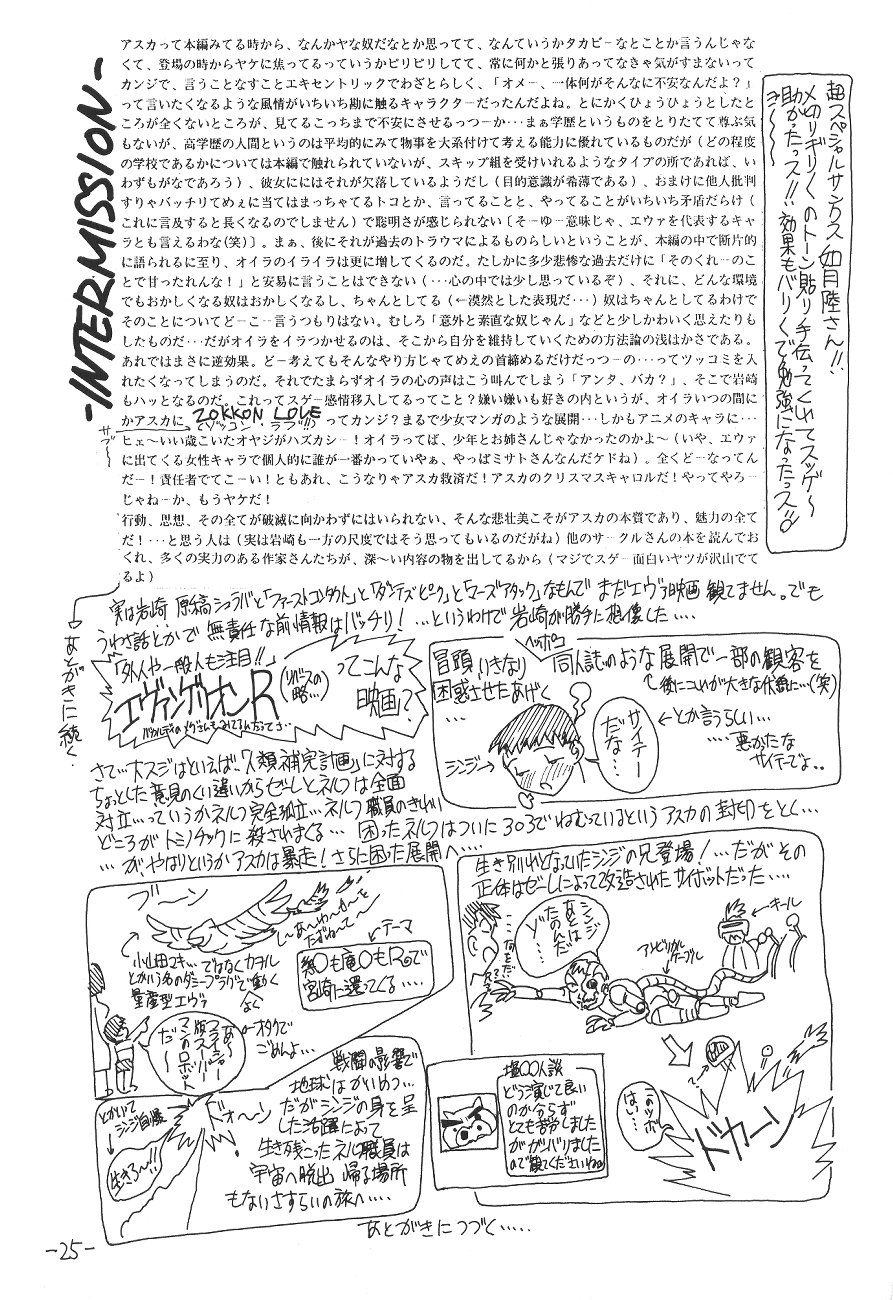 -INTERMISSION-
アスカって本編みてる時から、なんかヤな奴だなとか思ってて、なんていうかタカビーなとことか言うんじゃな
くて、登場の時からヤケに焦ってるっていうかピリピリしてて、常に何かと張りあってなきゃ気がすまないって
カンジで、言うことなすことエキセントリックでわざとらしく、「オメー、一体何がそんなに不安なんだよ？」
って言いたくなるような風情がいちいち勘に触るキャラクターだったんだよね。とにかくひょうひょうとしたと
ころが全くないところが、見てるこっちまで不安にさせるっつーか…まぁ学歴というものをとりたてて尊ぶ気
もないが、高学歴の人間というのは平均的にみて物事を大系付けて考える能力に優れているものだが（どの程度
の学校であるかについては本編で触れられていないが、スキップ組を受けいれるようなタイプの所であれば、い
わずもがなであろう）、彼女ににはそれが欠落しているようだし（目的意識が希薄である）、おまけに他人批判
すりゃバッチリてめぇに当てはまっちゃてるトコとか、言ってることと、やってることがいちいち矛盾だらけ（
これに言及すると長くなるのでしません）で聡明さが感じられない〔そーゆー意味じゃ、エヴァを代表するキャ
ラとも言えるわな（笑）〕。まぁ、後にそれが過去のトラウマによるものらしいということが、本編の中で断片的
に語られるに至り、オイラのイライラは更に増してくるのだ。たしかに多少悲惨な過去だけに「そのくれーのこ
とで甘ったれんな！」と安易に言うことはできない（…心の中では少し思っているぞ）、それに、どんな環境
でもおかしくなる奴はおかしくなるし、ちゃんとしてる（←漠然とした表現だ…）奴はちゃんとしてるわけで
そのことについてどーこー言うつもりはない。むしろ「意外と素直な奴じゃん」などと少しかわいく思えたりも
したものだ…だがオイラをイラつかせるのは、そこから自分を維持していくための方法論の浅はかさである。
あれではまさに逆効果。どー考えてもそんなやり方じゃてめえの首締めるだけだっつーの…ってツッコミを入
れたくなってしまうのだ。それでたまらずオイラの心の声はこう叫んでしまう「アンタ、バカ？」、そこで岩崎
もハッとなるのだ。これってスゲー感情移入してるってこと？嫌い嫌いも好きの内というが、オイラいつの間に
かアスカに、ZOKKON LOVE（ゾッコン・ラブ!!）ってカンジ？まるで少女マンガのような展開…しかもアニメのキャラに…
サブ〜
ヒェ〜いい歳こいたオヤジがハズカシー！オイラってば、少年とお姉さんじゃなかったのかよ〜（いや、エヴァ
に出てくる女性キャラで個人的に誰が一番かっていやぁ、やっぱミサトさんなんだケドね）。全くどーなってん
だー！責任者でてこーい！ともあれ、こうなりゃアスカ救済だ！アスカのクリスマスキャロルだ！やってやろー
じゃねーか、もうヤケだ！
行動、思想、その全てが破滅に向かわずにはいられない、そんな悲壮美こそがアスカの本質であり、魅力の全て
だ！…と思う人は（実は岩崎も一方の尺度ではそう思ってもいるのだがね）他のサークルさんの本を読んでお
くれ、多くの実力のある作家さんたちが、深〜い内容の物を出してるから（マジでスゲー面白いヤツが沢山でて
るよ）
→あとがきに続く.
超スペシャルサンクス 如月陸さん!!
〆切りギリギリのトーン貼り手伝ってくれてスッゲ〜
助かったっス!! 効果もバリバリで勉強になったっス!!
実は岩崎、原稿シュラバと「ファーストコンタクト」と「ダンテズピーク」と「マーズアタック」なもんで まだエヴァ映画 観てません。でも
うわさ話とかで 無責任な前情報はバッチリ！…というわけで 岩崎が勝手に想像した….
「外人や一般人も注目!!」
エヴァンゲリオンR（リバースの略…）
ってこんな映画？
冒頭、いきなりヘッポコ同人誌のような展開で一部の観客を
困惑させたあげく
…
└後にコレが大きな伏線に…(笑)
シンジ→
サイテーだな…
←とか言うらしい…
….悪かたな
サイテーでよ..
さて…大スジはといえば、「人類補完計画」に対する
ちょっとした意見のくい違いからゼーレとネルフは全面
対立…っていうかネルフ完全独立…ネルフ職員のきれい
どころがトミノチックに殺されまくる… 困ったネルフはついに303でねむっているというアスカの封印をとく…
…が、やはりというかアスカは暴走！さらに困った展開へ….
ブーン
小山田マキ…ではなくカヲル
とかいう名のダミープラグで動く
量産型エヴァ
←テーマ
宮崎に還ってくる….
あ〜
フライシャー版スーパーマンのロボットだ〜
←オタクでごめんよ…
生き別れとなっていたシンジの兄登場！…だがその
正体はゼーレによって改造されたサイボットだった….
シンジ
あとは
たのんだ
ゾ…
…何をだ
アンビリカルケーブル
←キール
このツボはいい…
ドカーン
塩〇〇人談
どう演じて良い
のか分らず
とても苦労しました
がガンバりました
ので観てくださいね
とかいってシンジ自爆
生きろ〜!!
ドォーン
戦闘の影響で
地球はかいめつ…
だがシンジの身を呈
した活躍によって
生き残こったネルフ職員は
宇宙へ脱出 帰る場所
もないさすらいの旅へ….
あとがきにつづく…..
-25-